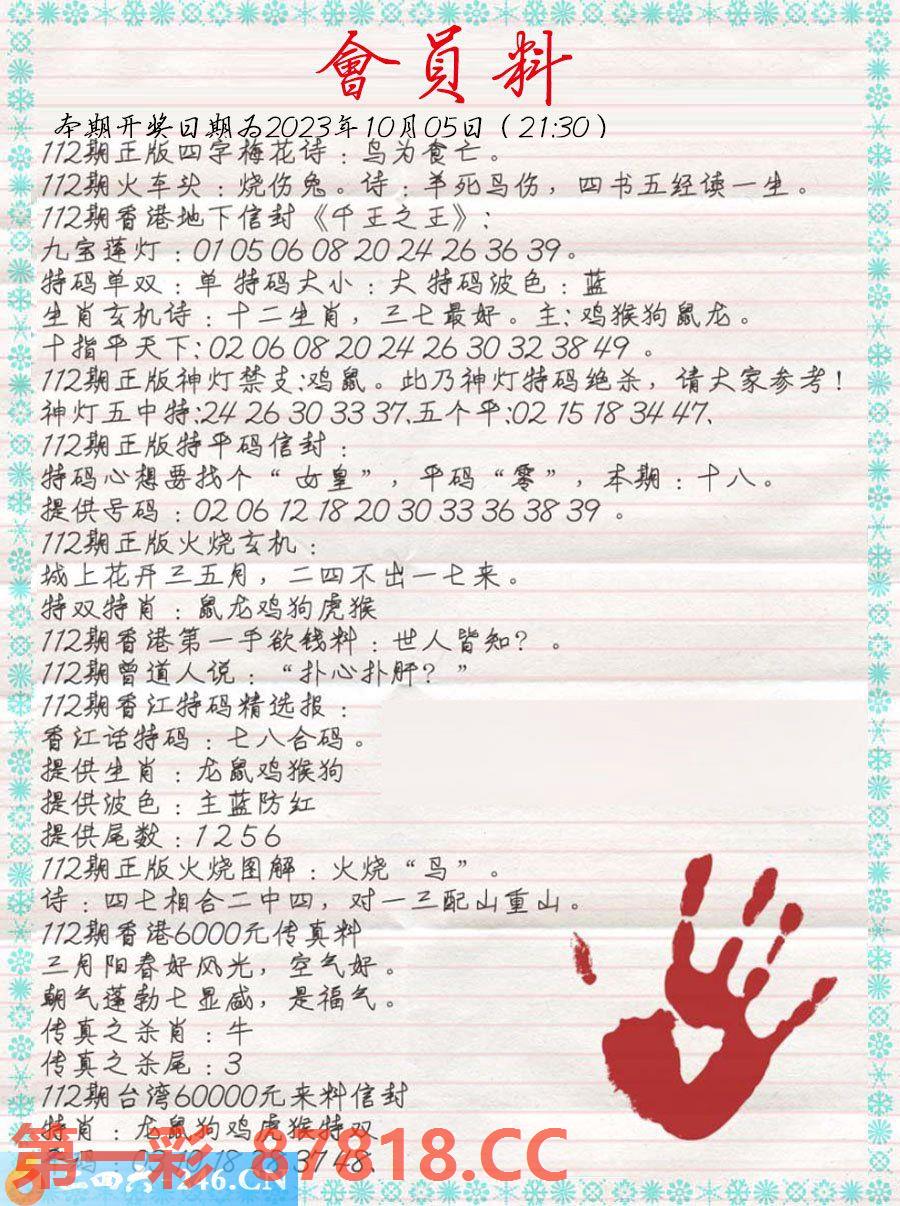 會員料
本期开奖日期为2023年10月05日（21:30）
112期正版四字梅花诗：鸟为食亡。
112期火车站：烧伤兔。诗：羊死鸟伤，四书五经读一生。
112期香港地下信封《千王之王》：
九宝莲灯：01 05 06 08 20 24 26 36 39。
特码单双：单 特码大小：大 特码波色：蓝
生肖玄机诗：十二生肖，三七最好。主：鸡猴狗鼠龙。
十指平天下：02 06 08 20 24 26 30 32 38 49 。
112期正版神灯禁支：鸡鼠。此乃神灯特码绝杀，请大家参考！
神灯五中特：24 26 30 33 37.五个平：02 15 18 34 47.
112期正版特平码信封：
特码心想要找个“女皇”，平码“零”，本期：十八。
提供号码：02 06 12 18 20 30 33 36 38 39 。
112期正版火烧玄机：
城上花开三五月，二四不出一七来。
特双特肖：鼠龙鸡狗虎猴
112期香港第一手欲钱料：世人皆知？。
112期曾道人说：“扑心扑肝？”
112期香江特码精选报：
香江话特码：七八合码。
提供生肖：龙鼠鸡猴狗
提供波色：主蓝防红
提供尾数：1 2 5 6
112期正版火烧图解：火烧“鸟”。
诗：四七相合二中四，对一三配山重山。
112期香港6000元传真料
三月阳春好风光，空气好。
朝气蓬勃七显威，是福气。
传真之杀肖：牛
传真之杀尾：3
112期台湾60000元来料信封
特肖：龙鼠狗鸡虎猴特双
第一彩 87818.CC
246.CN